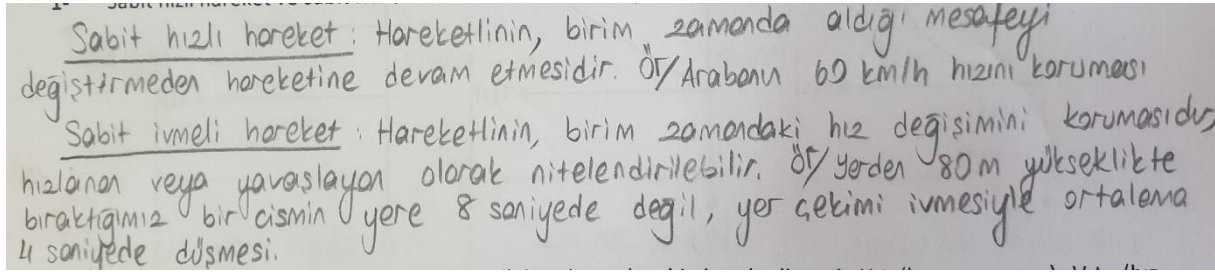 Sabit hızlı hareket : Hareketlinin, birim zamanda aldığı mesafeyi
değiştirmeden hareketine devam etmesidir. Ör/ Arabanın 60 km/h hızını koruması
Sabit ivmeli hareket : Hareketlinin, birim zamandaki hız değişimini korumasıdır,
hızlanan veya yavaşlayan olarak nitelendirilebilir. Ör/ yerden 80 m yükseklikte
bıraktığımız bir cismin yere 8 saniyede değil, yer çekimi ivmesiyle ortalama
4 saniyede düşmesi.